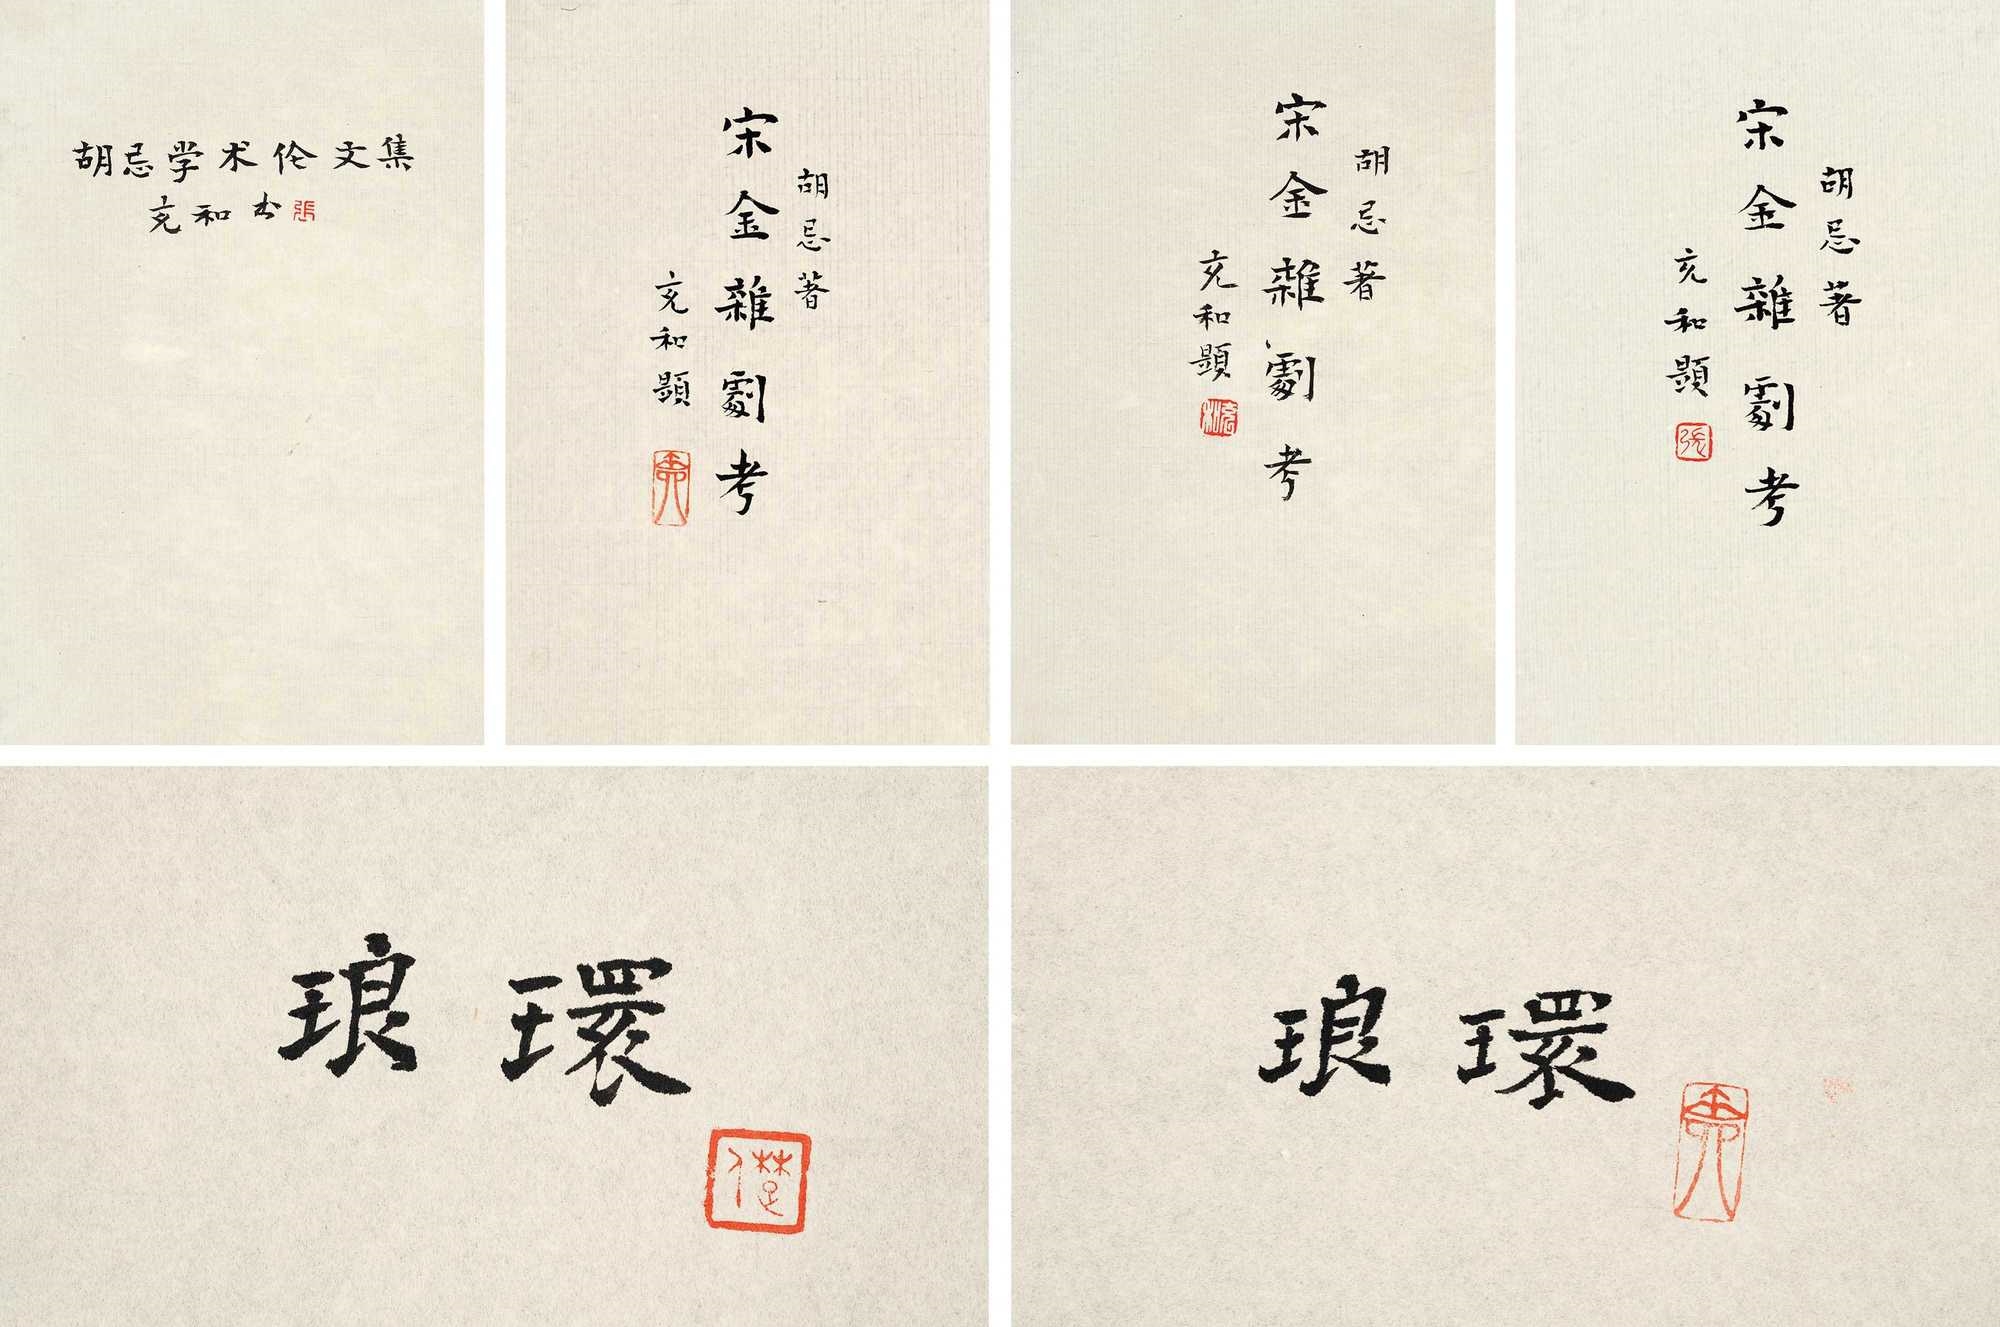 胡忌学术伦文集
充和书
張
胡忌著
宋金雜劇考
充和題
胡忌著
宋金雜劇考
充和題
充和
胡忌著
宋金雜劇考
充和題
張
琅環
琅環